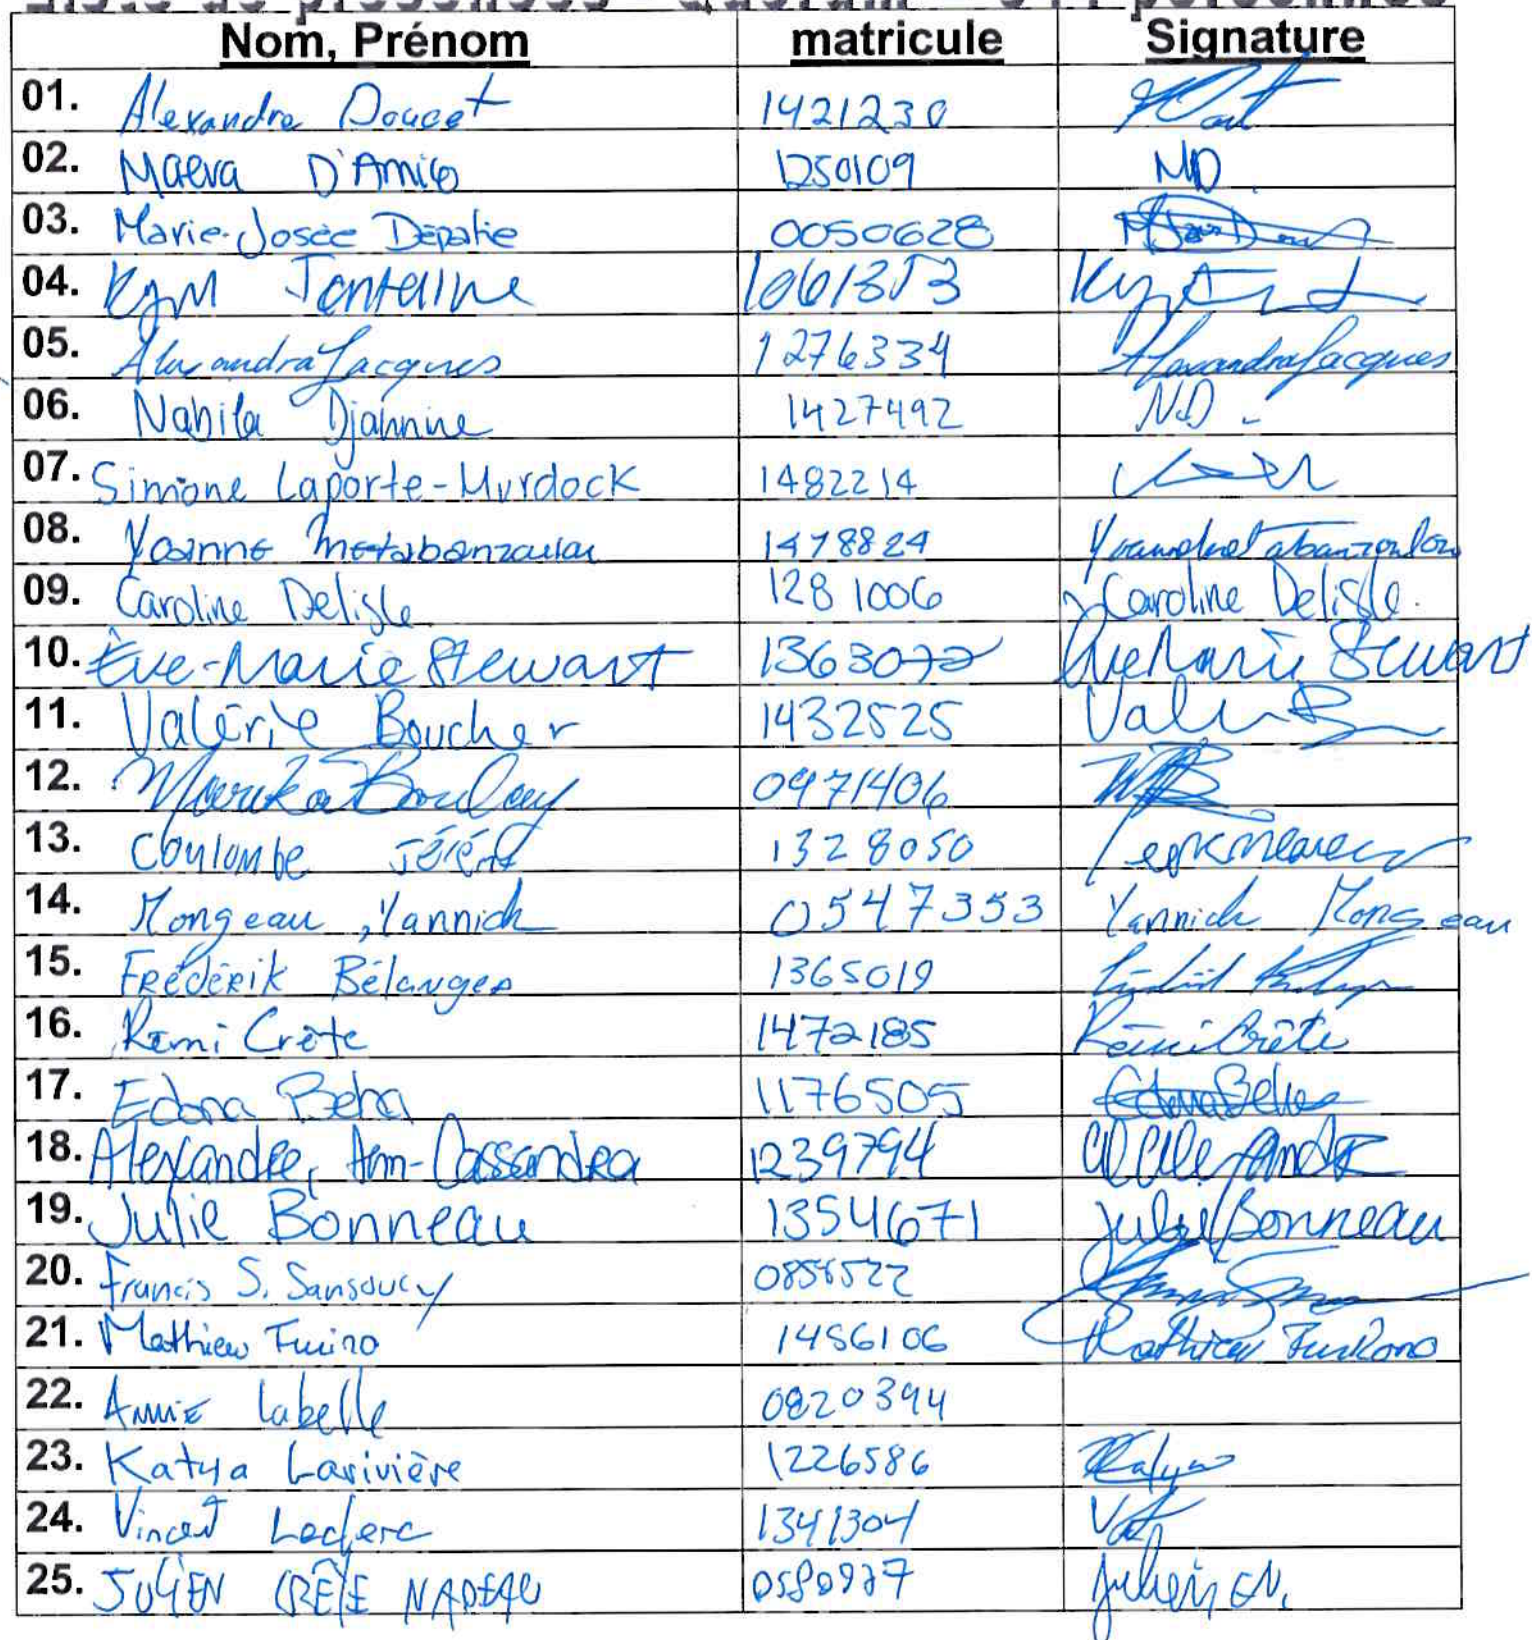 Liste de présences Quorum 344 personnes
Nom, Prénom matricule Signature
01. Alexandre Doucet 1421230
02. Maeva D'Amico 1250109 MD
03. Marie-Josée Depatie 0050628
04. Kym Fontaine 1061353 Kym
05. Alexandra Jacques 1276334 Alexandra Jacques
06. Nabila Djahnine 1427492 N.D.
07. Simone Laporte-Murdock 1482214
08. Yoanne 1478824
09. Caroline Delisle 1281006 Caroline Delisle.
10. Ève-Marie Stewart 1363072 Eve Marie Stewart
11. Valérie Boucher 1432525
12. Marika Boulay 0971406
13. Coulombe 1328050
14. Mongeau, Yannick 0547353 Yannick Mongeau
15. Frédérik Bélanger 1365019
16. Rémi Crête 1472185 Rémi Crête
17. Edona Beha 1176505 Edona Beha
18. Alexandre, Ann-Cassandra 1239794
19. Julie Bonneau 1354671 Julie Bonneau
20. Francis S. Sansoucy 0858522
21. Mathieu 1456106 Mathieu
22. Annie Labelle 0820394
23. Katya Larivière 1226586 Katya
24. Vincent Leclerc 1341304
25. JULIEN CRÊTE NADEAU 0580977 Julien CN.